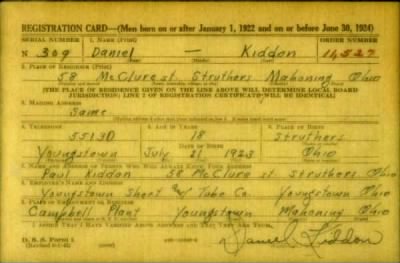 REGISTRATION CARD—(Men born on or after January 1, 1922 and on or before June 30, 1924)
SERIAL NUMBER 1. NAME (Print) ORDER NUMBER
N 309 Daniel — Kiddon 14,527
(First) (Middle) (Last)
2. PLACE OF RESIDENCE (Print)
58 McClure st. Struthers Mahoning Ohio
[THE PLACE OF RESIDENCE GIVEN ON THE LINE ABOVE WILL DETERMINE LOCAL BOARD
JURISDICTION; LINE 2 OF REGISTRATION CERTIFICATE WILL BE IDENTICAL]
3. MAILING ADDRESS
Same
4. TELEPHONE 5. AGE IN YEARS 6. PLACE OF BIRTH
55130 18 Struthers
DATE OF BIRTH
Youngstown July 21 1923 Ohio
7. NAME AND ADDRESS OF PERSON WHO WILL ALWAYS KNOW YOUR ADDRESS
Paul Kiddon 58 McClure st Struthers Ohio
8. EMPLOYER'S NAME AND ADDRESS
Youngstown Sheet and Tube Co. Youngstown Ohio
9. PLACE OF EMPLOYMENT OR BUSINESS
Campbell Plant Youngstown Mahoning Ohio
I AFFIRM THAT I HAVE VERIFIED ABOVE ANSWERS AND THAT THEY ARE TRUE.
D. S. S. Form 1
Daniel Kiddon